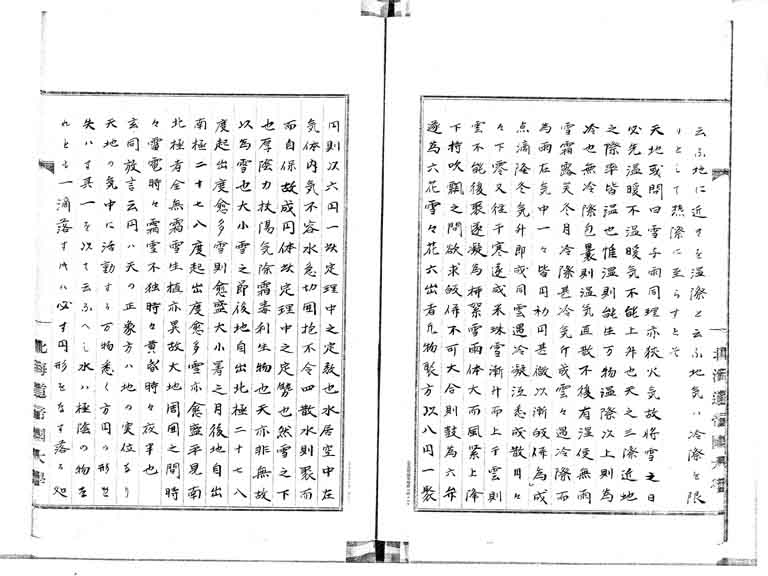 云ふ地に近きを温際と云ふ地気ハ冷際を限
りとして熱際に至らすとそ
天地或問曰雪子雨同理亦狄火気故将雪之日
必先温暖不温暖気不能上升也天之三際近地
之際平皆温也惟温則能生万物温際以上則為
冷也無冷際包裹則温気直散不復有湿使無雨
雪霜露矣冬月冷際甚冷気斤或雲々遇冷際而
為雨在気中一々皆円初円甚微以漸皎併為成
点滴降冬気升即或同雲遇冷凝沍悉成散月々
々下寒又往于寒遂成米珠雪漸升而上于雲則
雲不能復聚遂凝為挿緊雪雨体大而風紧上降
下持吹飄之間欲求皎併不可大合則鼓為六斧
遂為六花雪々花六出者凡物聚方以八円一聚
円則以六円一故定理中之定数也水居空中在
気体内気不容水急切囲抱不令四散水則聚而
而自保故成円体故定理中之定勢也然雪之下
也厚陰力扶陽気除霜毒利生物也天亦非無故
以為雪也大小雪之節後地自出北極二十七八
度起出度愈多雪則愈盛大小暑之月後地自出
南極二十七八度起出度愈多雪亦愈盛平見南
北極者全無霜雪生植亦異故大地周囲之間時
々雷電時々霜雪不独時々黄家時々夜半也
玄同放言云円ハ天の正象方ハ地の実位なり
天地の気中に活動する万物悉く方円の形を
失ハす其一を以て云ふへし水ハ極陰の物な
れとも一滴落す時ハ必す円形をなす落る処
北海道帝国大學